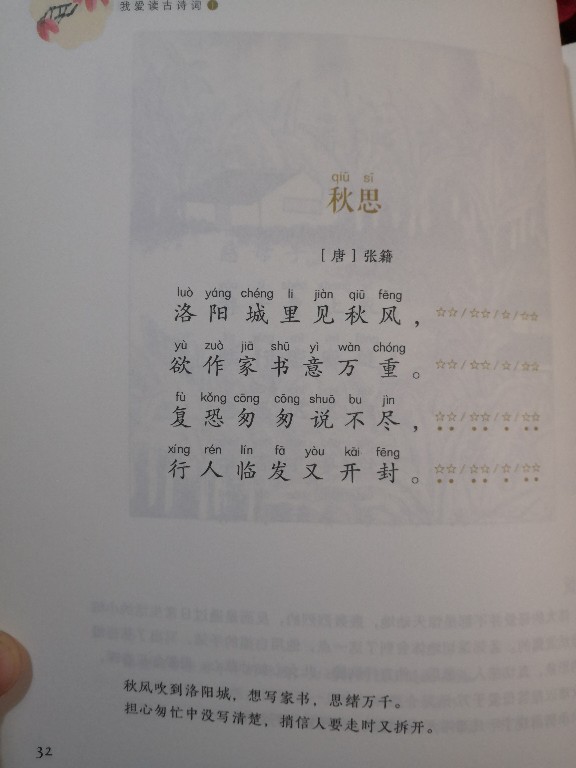 我爱读古诗词 1
qiū sī
秋思
［唐］张籍
luò yáng chéng li jiàn qiū fēng
洛阳城里见秋风，☆☆/☆☆/☆/☆☆
yù zuò jiā shū yì wàn chóng
欲作家书意万重。☆☆/☆☆/☆/☆☆
fù kǒng cōng cōng shuō bu jìn
复恐匆匆说不尽，☆☆/☆☆/☆/☆☆
xíng rén lín fā yòu kāi fēng
行人临发又开封。☆☆/☆☆/☆/☆☆
秋风吹到洛阳城，想写家书，思绪万千。
担心匆忙中没写清楚，捎信人要走时又拆开。
32